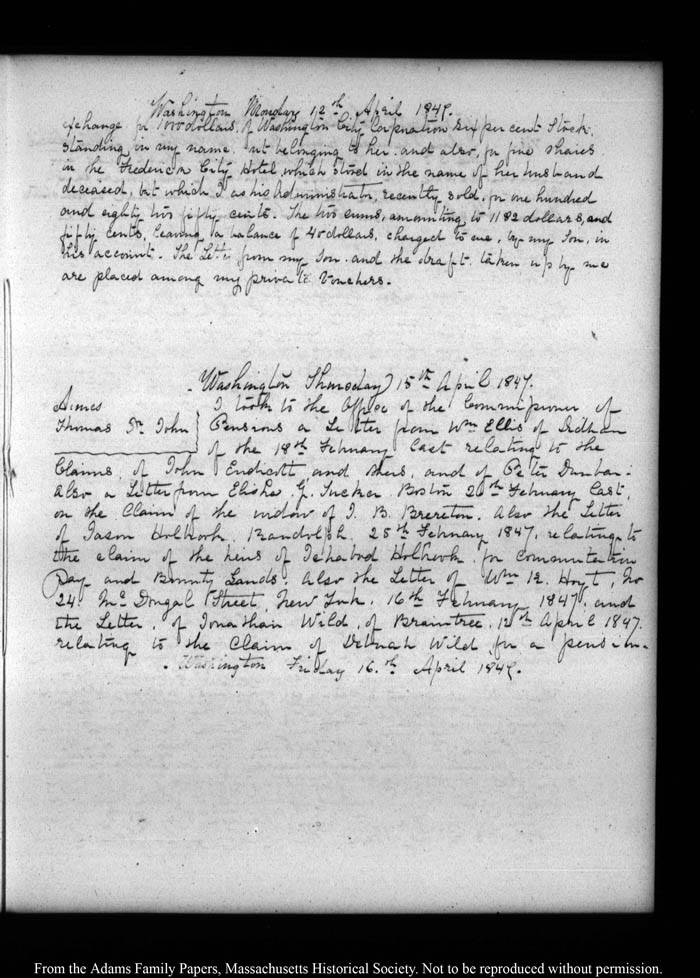 Washington Monday 12th April 1847.
exchange for 1000 dollars, of Washington City Corporation six per cent Stock,
standing in my name. but belonging to her. and also, for five shares
in the Frederica City Hotel, which stood in the name of her husband
deceased, but which I as his Administrator, recently sold, for one hundred
and eighty two fifty cents. The two sums, amounting to 1182 dollars, and
fifty cents, leaving a balance of 40 dollars, charged to me, by my Son, in
his account. The Letter from my Son and the draft taken up by me
are placed among my private Vouchers.
Washington Thursday 15th April 1847.
Aimes
Thomas Dr. John
I took to the Office of the Commissioner of
Pensions a Letter from Wm Ellis of Dedham
of the 18th February last relating to the
Claims, of John Endicott, and others, and of Peter Dunbar:
Also a Letter from Elisha G. Tucker Boston 20th February last,
on the Claim of the widow of J. B. Brereton. Also the Letter
of Jason Holbrook, Randolph, 25th February 1847. relating to
the claim of the heirs of Ichabod Holbrook for Commutation
Pay and Bounty Lands. Also the Letter of Wm H. Hoyt, No
24 Mc Dougal Street, New York, 16th February 1847. and
the Letter, of Jonathan Wild, of Braintree, 12th April 1847.
relating to the Claim of Deborah Wild for a pension.
Washington Friday 16th April 1847.
From the Adams Family Papers, Massachusetts Historical Society. Not to be reproduced without permission.